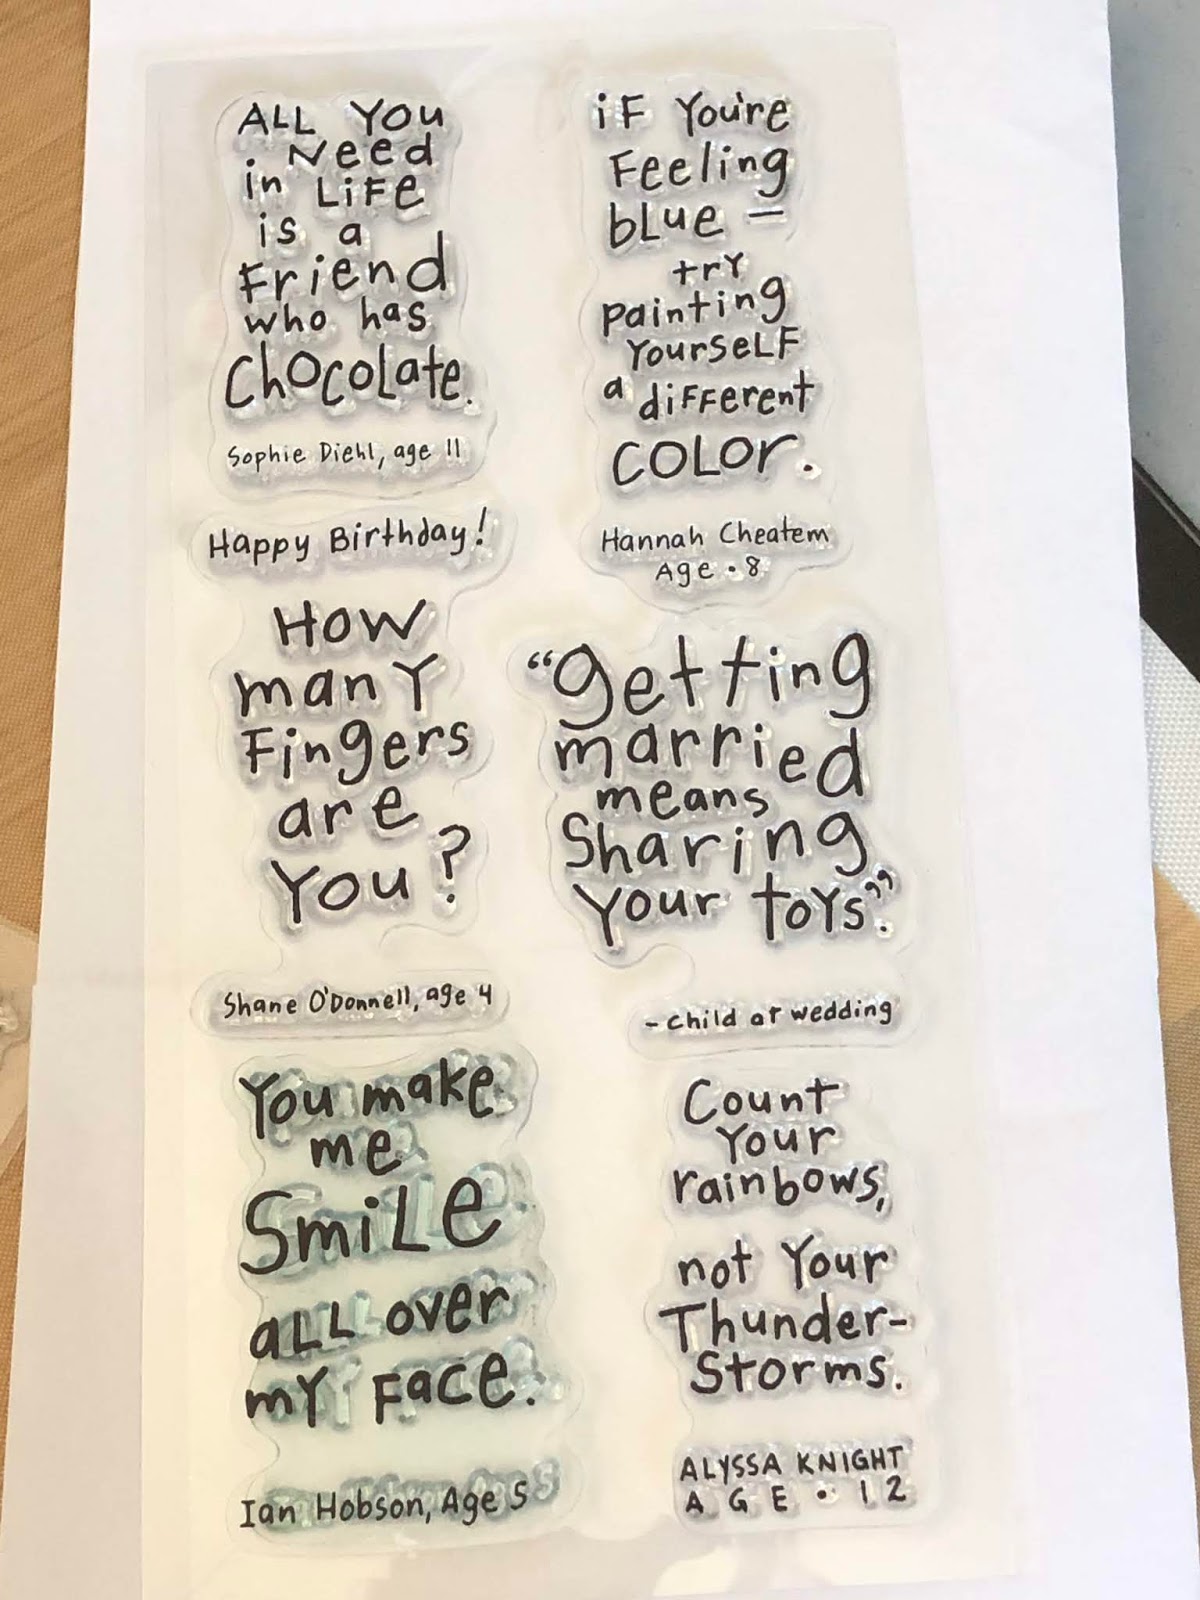 ALL You
in Need
in LiFe
is a
Friend
who has
Chocolate.
Sophie Diehl, age 11
Happy Birthday!
How
many
Fingers
are
You?
Shane O'Donnell, age 4
You make
me
SmiLe
aLL over
my Face.
Ian Hobson, Age 5
iF You're
Feeling
blue —
try
painting
YourseLF
a diFFerent
COLOr.
Hannah Cheatem
Age • 8
"getting
married
means
Sharing
Your toys".
- child at wedding
Count
Your
rainbows,
not Your
Thunder-
Storms.
ALYSSA KNIGHT
AGE • 12